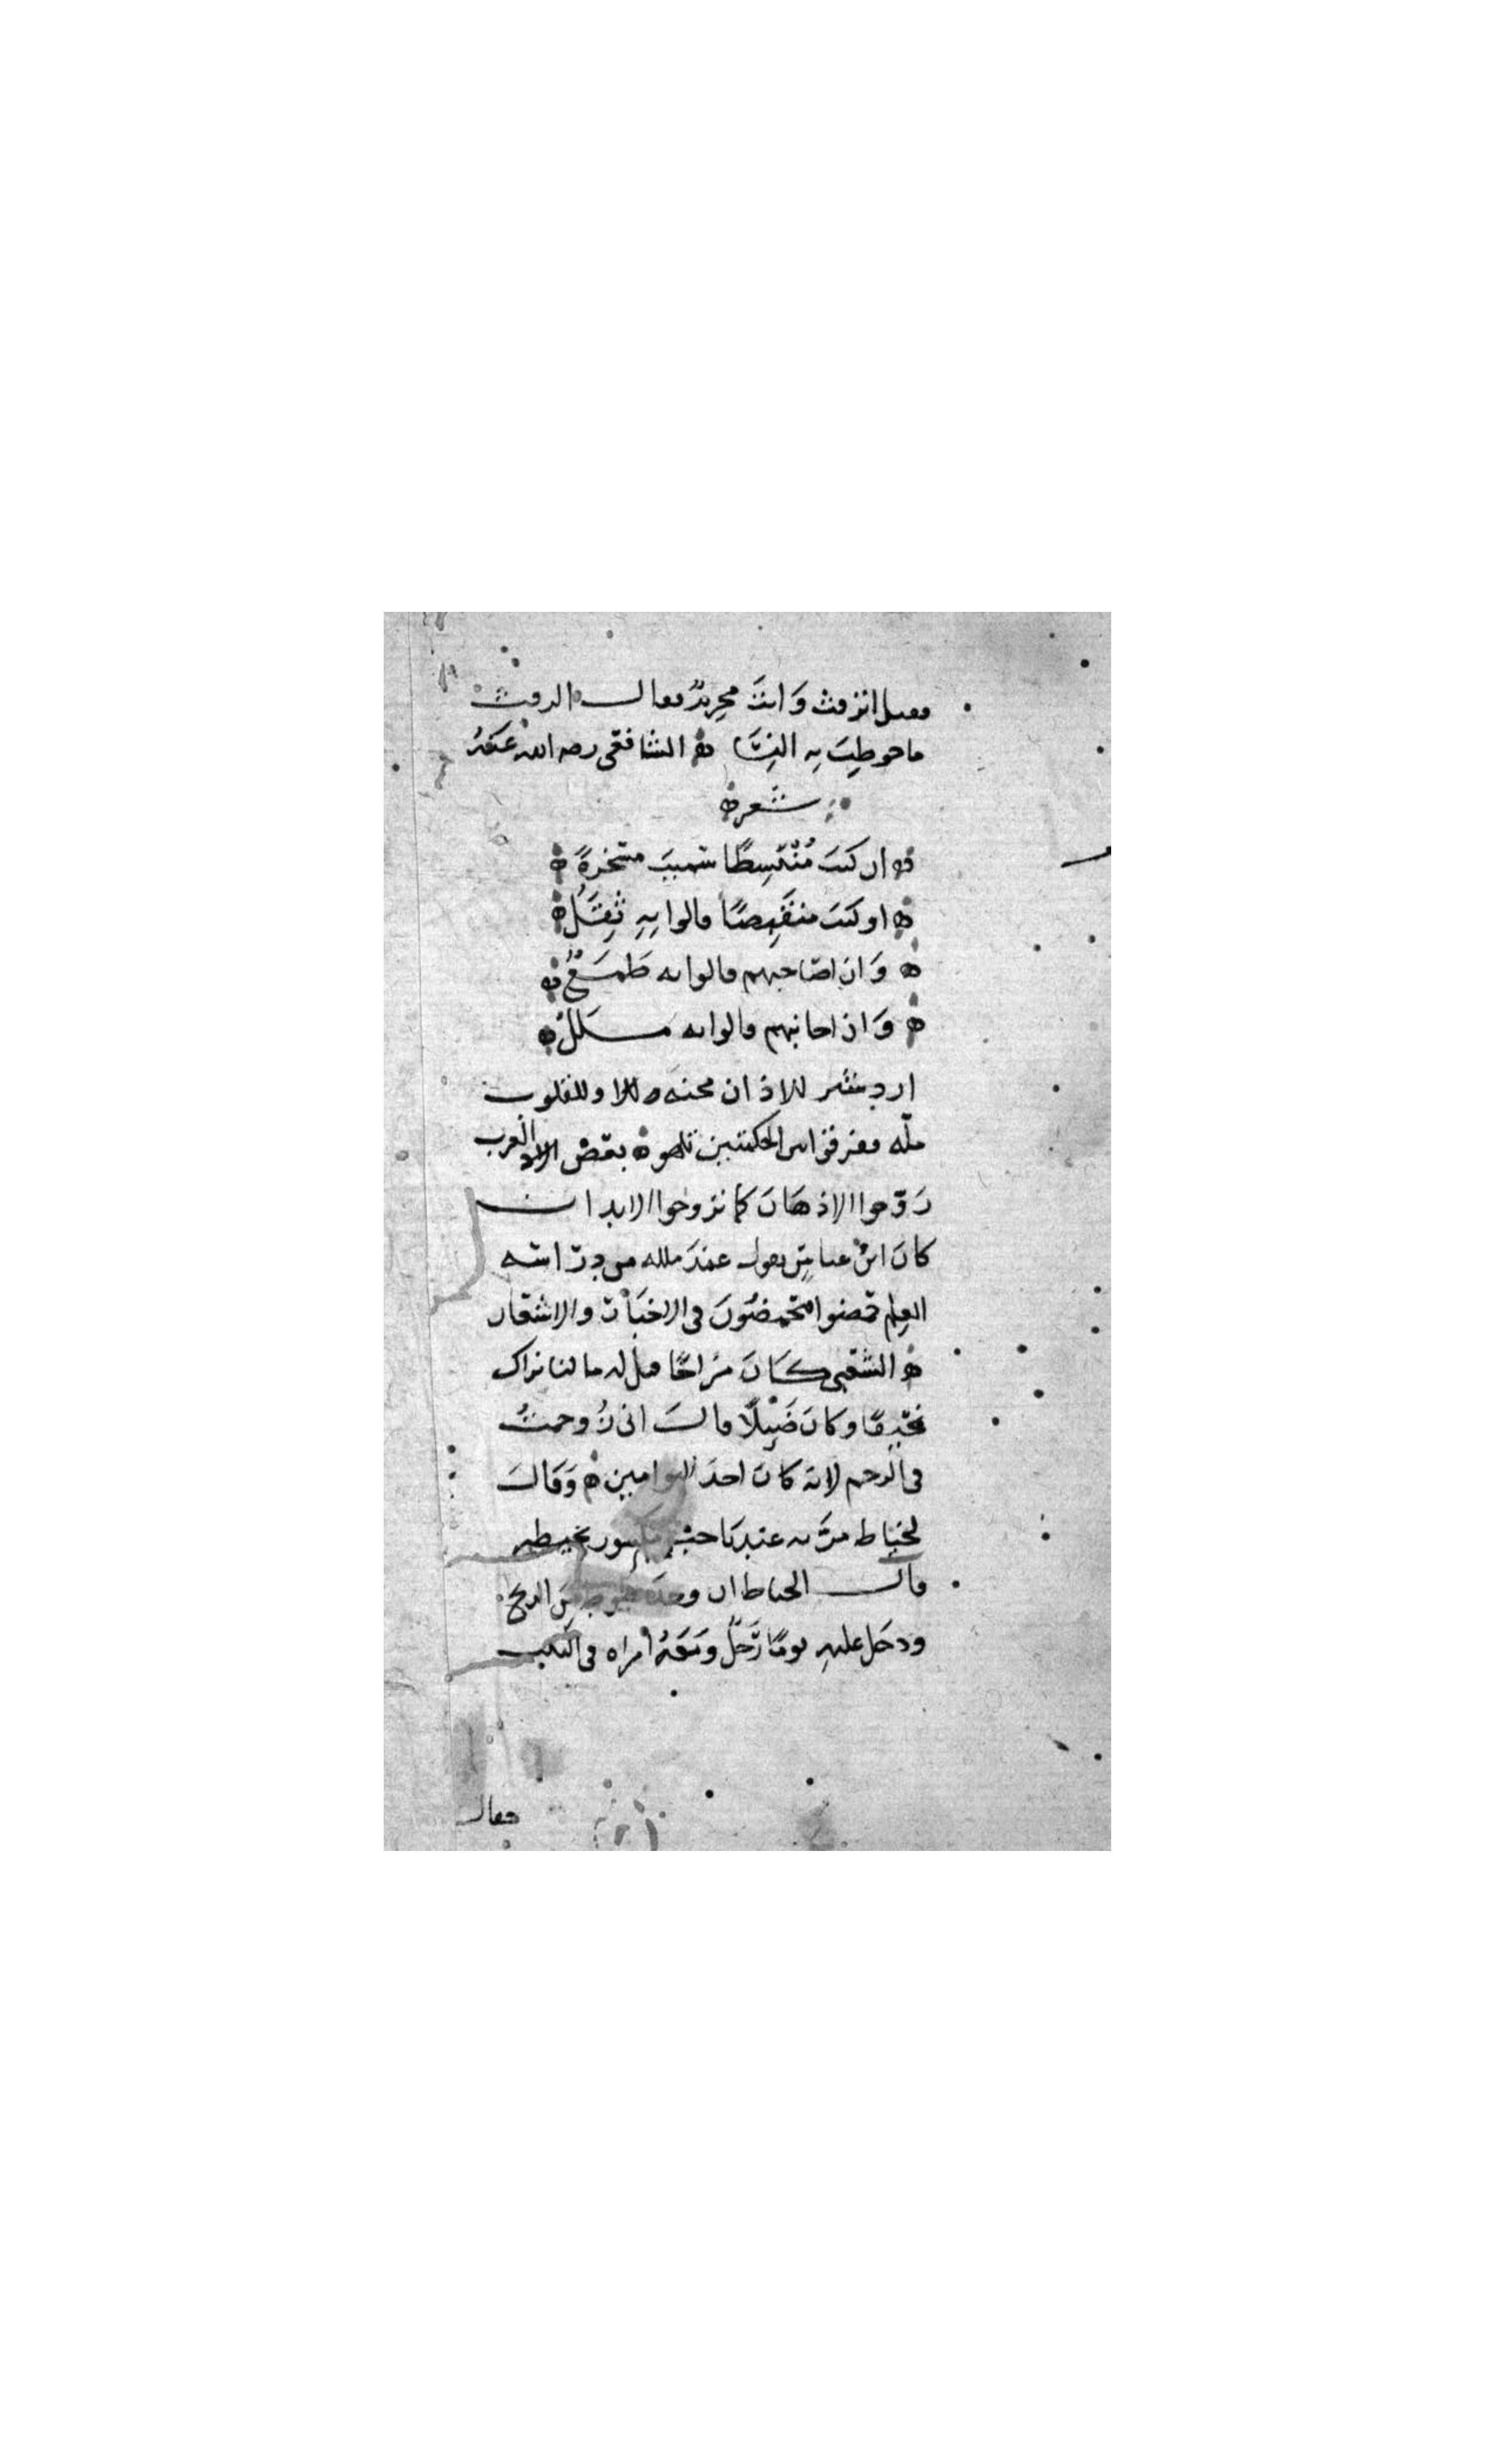 فقيل اترفث وَانتَ محرِمٌ فقال الرفث
ما خوطِبَ بِهِ النِسَا ه الشافعى رضى الله عنهُ
شعر ه
ه ان كنتَ مُنْبَسِطًا سُميتَ مسخرةً ه
ه او كنتَ منقَبِضًا قالوا بِهِ ثِقَلُ ه
ه وَان اصَاحبهم قالوا به طَمَعٌ ه
ه وَان اجانبهم قالوا به مَلَلُ ه
اردشير للاذان مجة وللقلوب
ملّة ففرقوا بين الحكمتين بلهو ه بعض العرب
رَوّحوا الاذهَانَ كما تروحوا الابدان
كانَ ابنُ عباسٍ يقول عندَ ملله من دِرَاسَة
العِلم حمّضوا فيخوضُونَ فى الاخبَار والاشعَار
ه الشعبى كَانَ مزاحًا قيل له ما لنا نراك
نحِيفًا وكانَ ضَئِيْلًا قالَ انى زُوحمتُ
فى الرحم لانه كانَ احدَ التوامين ه وَقالَ
لخياط مرَّ به عندنَا حبٌّ مكسور تخيطه
قال الخياط ان وجدت خيوطا مِن الريح
ودخَل عليهِ يومًا رَجُلٌ ومَعَهُ امراه فى البيت
فقال